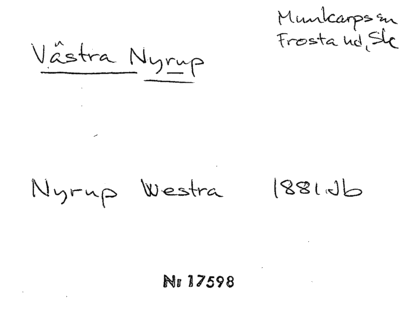 Munkarps sn
Frosta hd, Sk
Västra Nyrup
Nyrup Westra 1881 Jb
Nr 17598